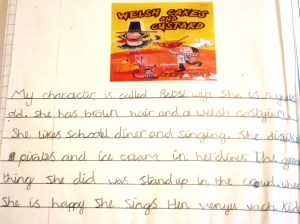 WELSH CAKES
AND
CUSTARD
My character is called Betsi wyn she is
old. she has brown hair and a welsh
She likes school diner and singing. She
pirates and ice cream in her diner. The
thing she did was stand up in the crowd when
She is happy She Sings Hen